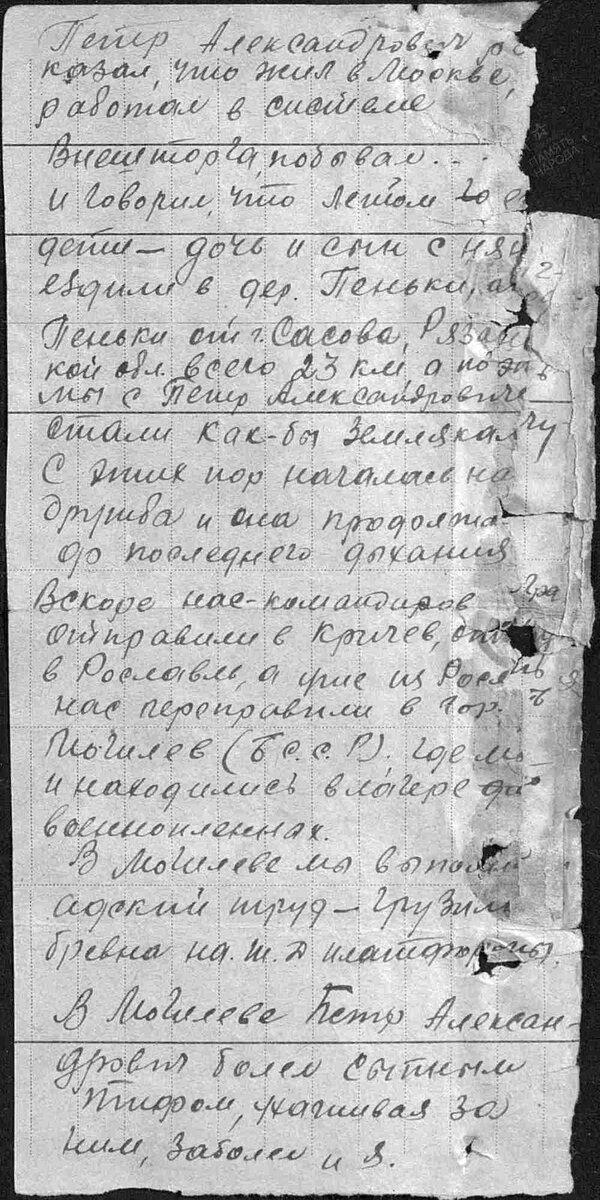 Петр Александрович ра
казал, что жил в Москве,
работал в системе
Внешторга, побывал...
и говорил, что летом го ег
дети — дочь и сын с нян
ездили в дер. Пеньки, а
Пеньки от г. Сасова, Рязан
кой обл. всего 23 км, а поэт
мы с Петр Александрович
стали как-бы земляками
С этих пор началась на
дружба и она продолжа
до последнего дыхания
Вскоре нас-командиров
отправили в Кричев,
в Рославль, а уже из Росл
нас переправили в гор.
Могилев (Б.С.С.Р). где мы
и находились в лагере для
военнопленнах.
В Могилеве мы выполн
адский труд — грузили
бревна на ж.д платформы.
В Могилеве Петр Алексан-
дрович болел сыпным
тифом, ухаживая за
ним, заболел и я.
ПАМЯТЬ
НАРОДА